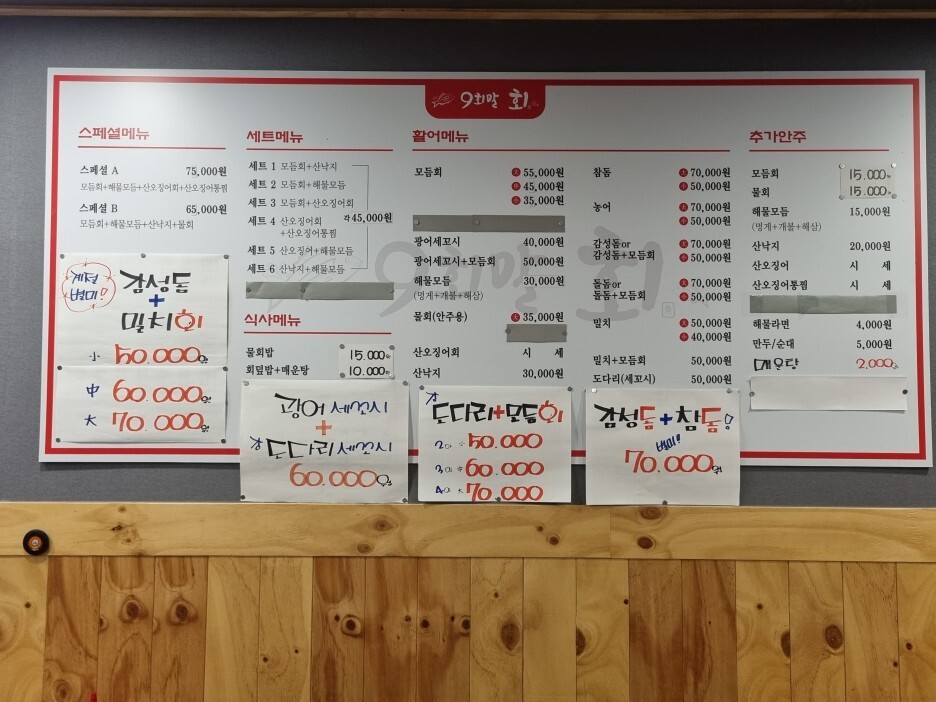 9회말 회
스페셜메뉴
스페셜 A 75,000원
모듬회+해물모듬+산오징어회+산오징어통찜
스페셜 B 65,000원
모듬회+해물모듬+산낙지+물회
小 50.000원
中 60.000원
大 70.000원
세트메뉴
세트 1 모듬회+산낙지
세트 2 모듬회+해물모듬
세트 3 모듬회+산오징어회
세트 4 산오징어회+산오징어통찜
각 45,000원
세트 5 산오징어+해물모듬
세트 6 산낙지+해물모듬
식사메뉴
물회밥 15.000원
회덮밥+매운탕 10.000원
광어세꼬시
+
도다리세꼬시
60.000원
활어메뉴
모듬회 大 55,000원
中 45,000원
小 35,000원
광어세꼬시 40,000원
광어세꼬시+모듬회 50,000원
해물모듬 30,000원
(멍게+개불+해삼)
물회(안주용) 大 35,000원
산오징어회 시 세
산낙지 30,000원
도다리+모듬회
2인 小 50.000
3인 中 60.000
4인 大 70.000
참돔 大 70,000원
小 50,000원
농어 大 70,000원
小 50,000원
감성돔or 大 70,000원
감성돔+모듬회 小 50,000원
돌돔or 大 70,000원
돌돔+모듬회 小 50,000원
밀치 大 50,000원
小 40,000원
밀치+모듬회 50,000원
도다리(세꼬시) 50,000원
감성돔+참돔
70.000원
추가안주
모듬회 15.000원
물회 15.000원
해물모듬 15,000원
(멍게+개불+해삼)
산낙지 20,000원
산오징어 시 세
산오징어통찜 시 세
해물라면 4,000원
만두/순대 5,000원
매운탕 2,000원
9회말 회